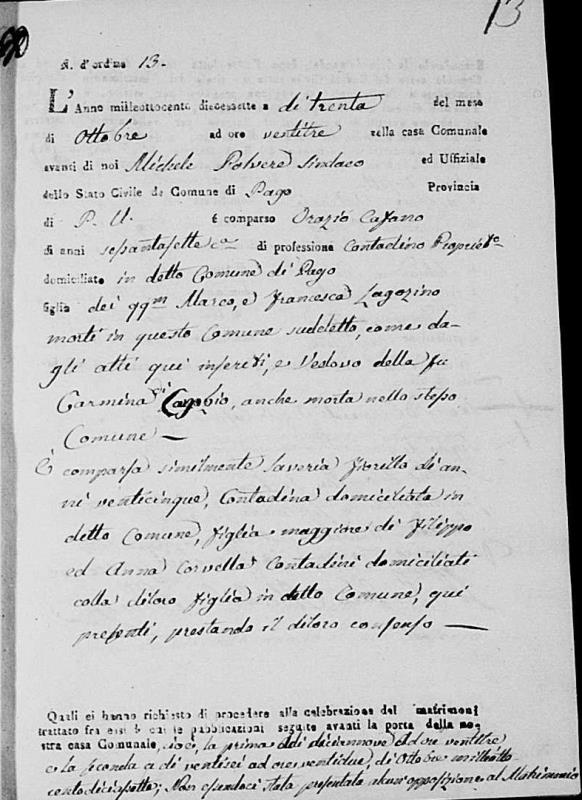 13
N. d'ordine 13.
L'Anno milleottocento diecessette a dì trenta del mese
di Ottobre ad ore ventitre nella casa Comunale
avanti di noi Michele Polvere Sindaco ed Uffiziale
dello Stato Civile de Comune di Pago Provincia
di P. U. é comparso Orazio Cafano
di anni sepantasette di professione Contadino
domiciliato in detto Comune di Pago
figlio dei qqm Marco, e Francesca Lagozino
morti in questo Comune suddetto, come da-
gli atti qui inseriti, e Vedovo della fu
Carmina, anche morta nello stesso
Comune —
È comparsa similmente Saveria Fiorillo di an-
ni venticinque, Contadina domiciliata in
detto Comune, figlia maggiore di Filippo
ed Anna Corvella Contadini domiciliati
colla diloro figlia in detto Comune, qui
presenti, prestando il diloro consenso —
Quali ci hanno richiesto di procedere alla celebrazione del matrimoni
trattato fra essi è cui le pubblicazioni seguite avanti la porta della no-
stra casa Comunale, cioè, la prima a dì diciannove ad ore ventitre
e la seconda a dì ventisei ad ore ventidue, di Ottobre milleotto
centodiciasette; Non essendoci stata presentata alcun'opposizione al Matrimonio